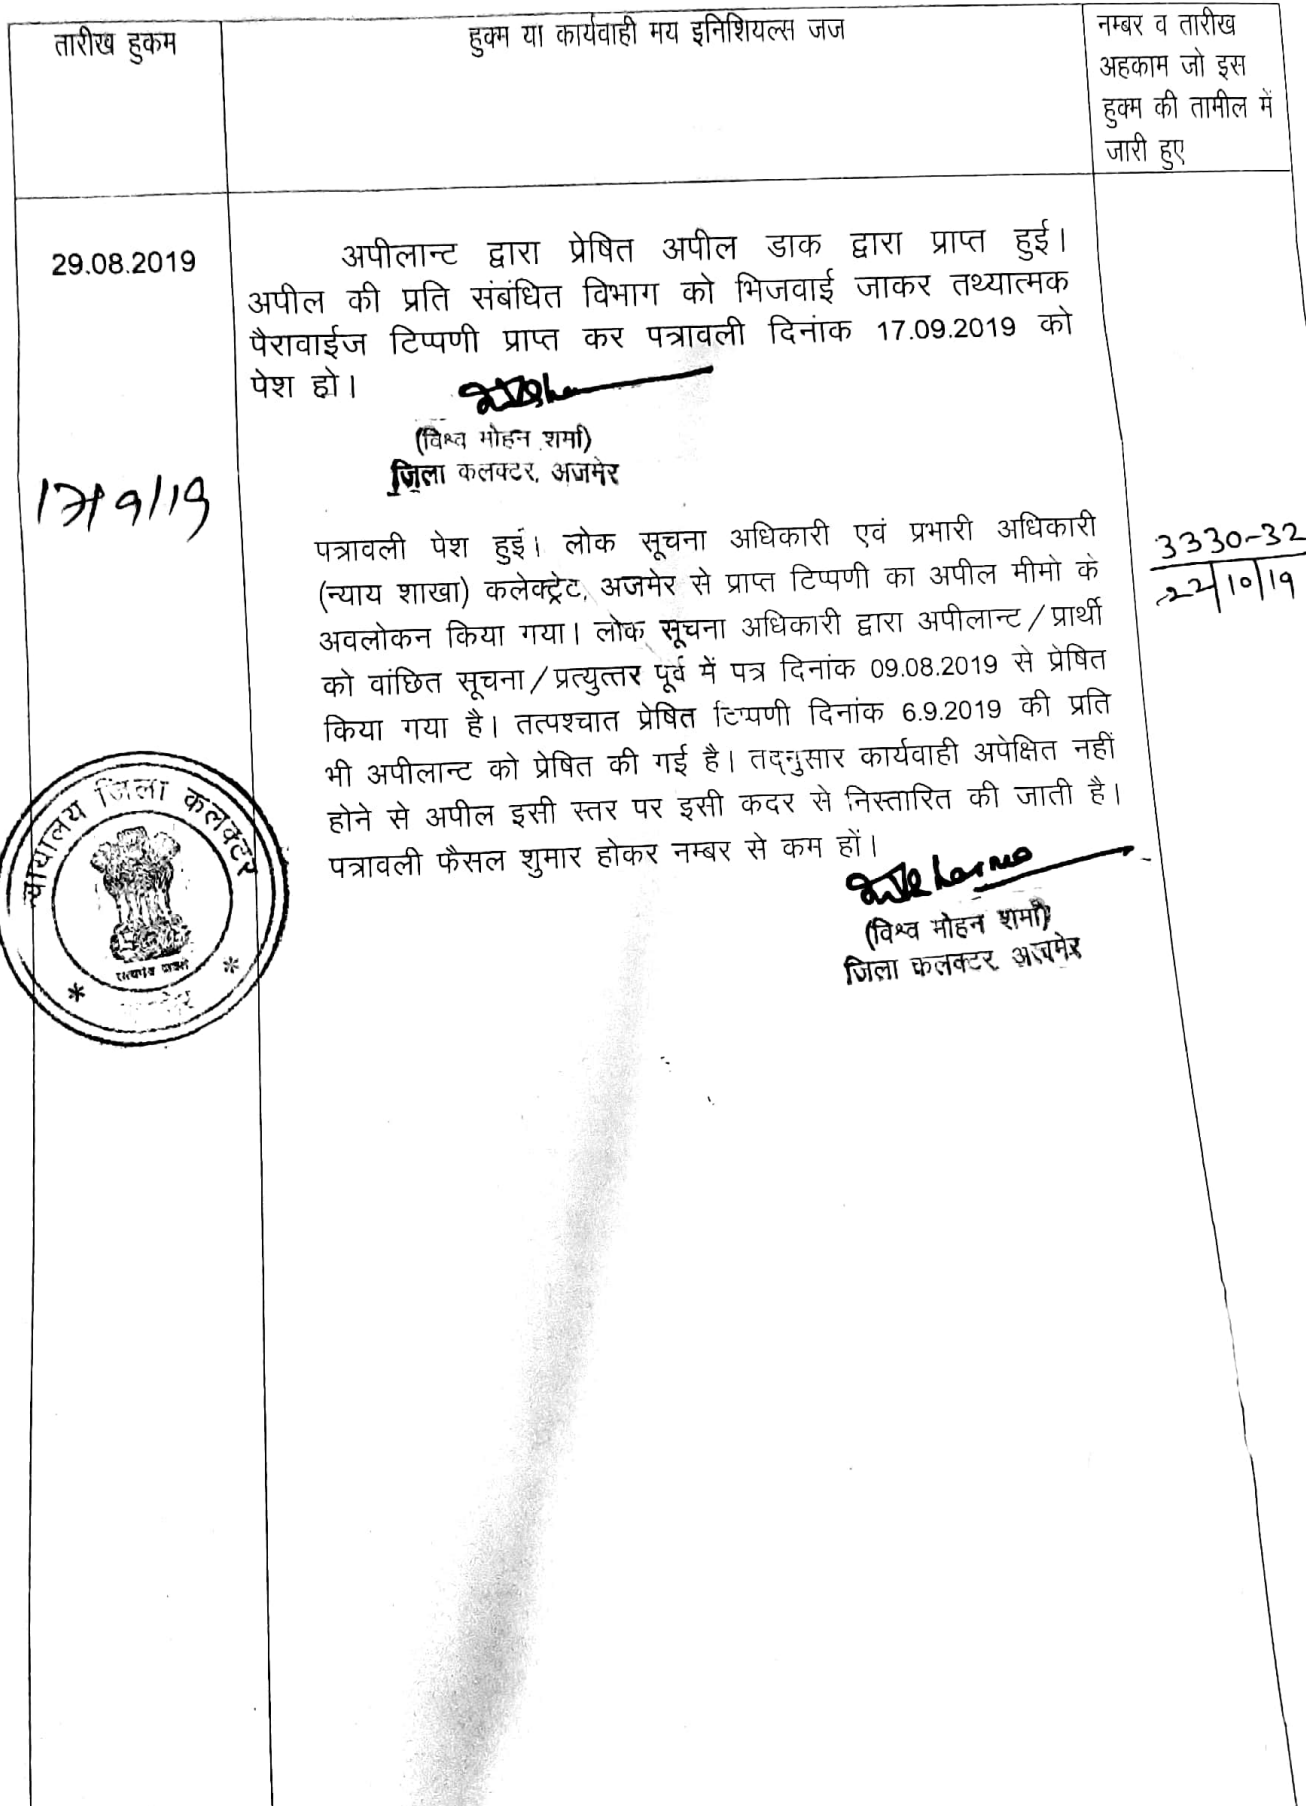 तारीख हुकम
हुक्म या कार्यवाही मय इनिशियल्स जज
नम्बर व तारीख
अहकाम जो इस
हुक्म की तामील में
जारी हुए
29.08.2019
अपीलान्ट द्वारा प्रेषित अपील डाक द्वारा प्राप्त हुई।
अपील की प्रति संबंधित विभाग को भिजवाई जाकर तथ्यात्मक
पैरावाईज टिप्पणी प्राप्त कर पत्रावली दिनांक 17.09.2019 को
पेश हो।
(विश्व मोहन शर्मा)
जिला कलक्टर, अजमेर
17/9/19
पत्रावली पेश हुई। लोक सूचना अधिकारी एवं प्रभारी अधिकारी
(न्याय शाखा) कलेक्ट्रेट, अजमेर से प्राप्त टिप्पणी का अपील मीमो के
अवलोकन किया गया। लोक सूचना अधिकारी द्वारा अपीलान्ट/प्रार्थी
को वांछित सूचना/प्रत्युत्तर पूर्व में पत्र दिनांक 09.08.2019 से प्रेषित
किया गया है। तत्पश्चात प्रेषित टिप्पणी दिनांक 6.9.2019 की प्रति
भी अपीलान्ट को प्रेषित की गई है। तद्नुसार कार्यवाही अपेक्षित नहीं
होने से अपील इसी स्तर पर इसी कदर से निस्तारित की जाती है।
पत्रावली फैसल शुमार होकर नम्बर से कम हों।
(विश्व मोहन शर्मा)
जिला कलक्टर, अजमेर
3330-32
22/10/19
न्यायालय जिला कलक्टर
सत्यमेव जयते